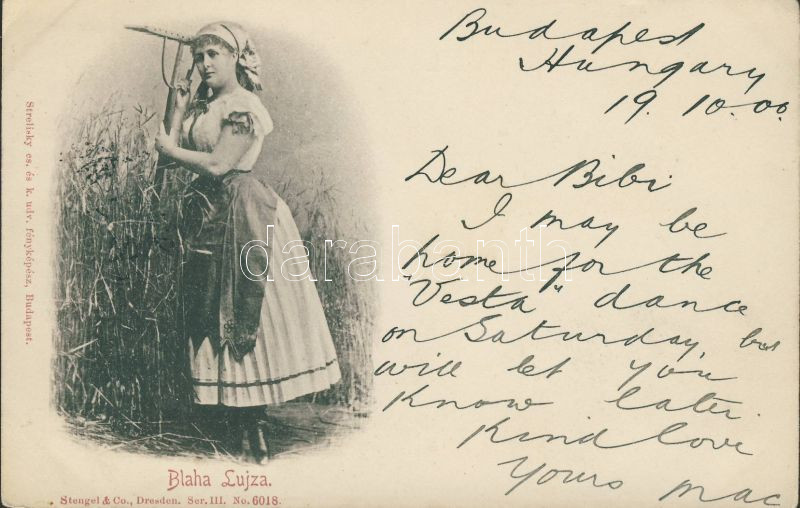 Budapest
Hungary
19. 10.00.
Dear Bibi
I may be
home for the
"Vesta" dance
on Saturday, but
will let you
know later.
Kind love
Yours Mac
Strelisky cs. és k. udv. fényképész, Budapest.
darabanth
Blaha Lujza.
Stengel & Co., Dresden. Ser. III. No. 6018.